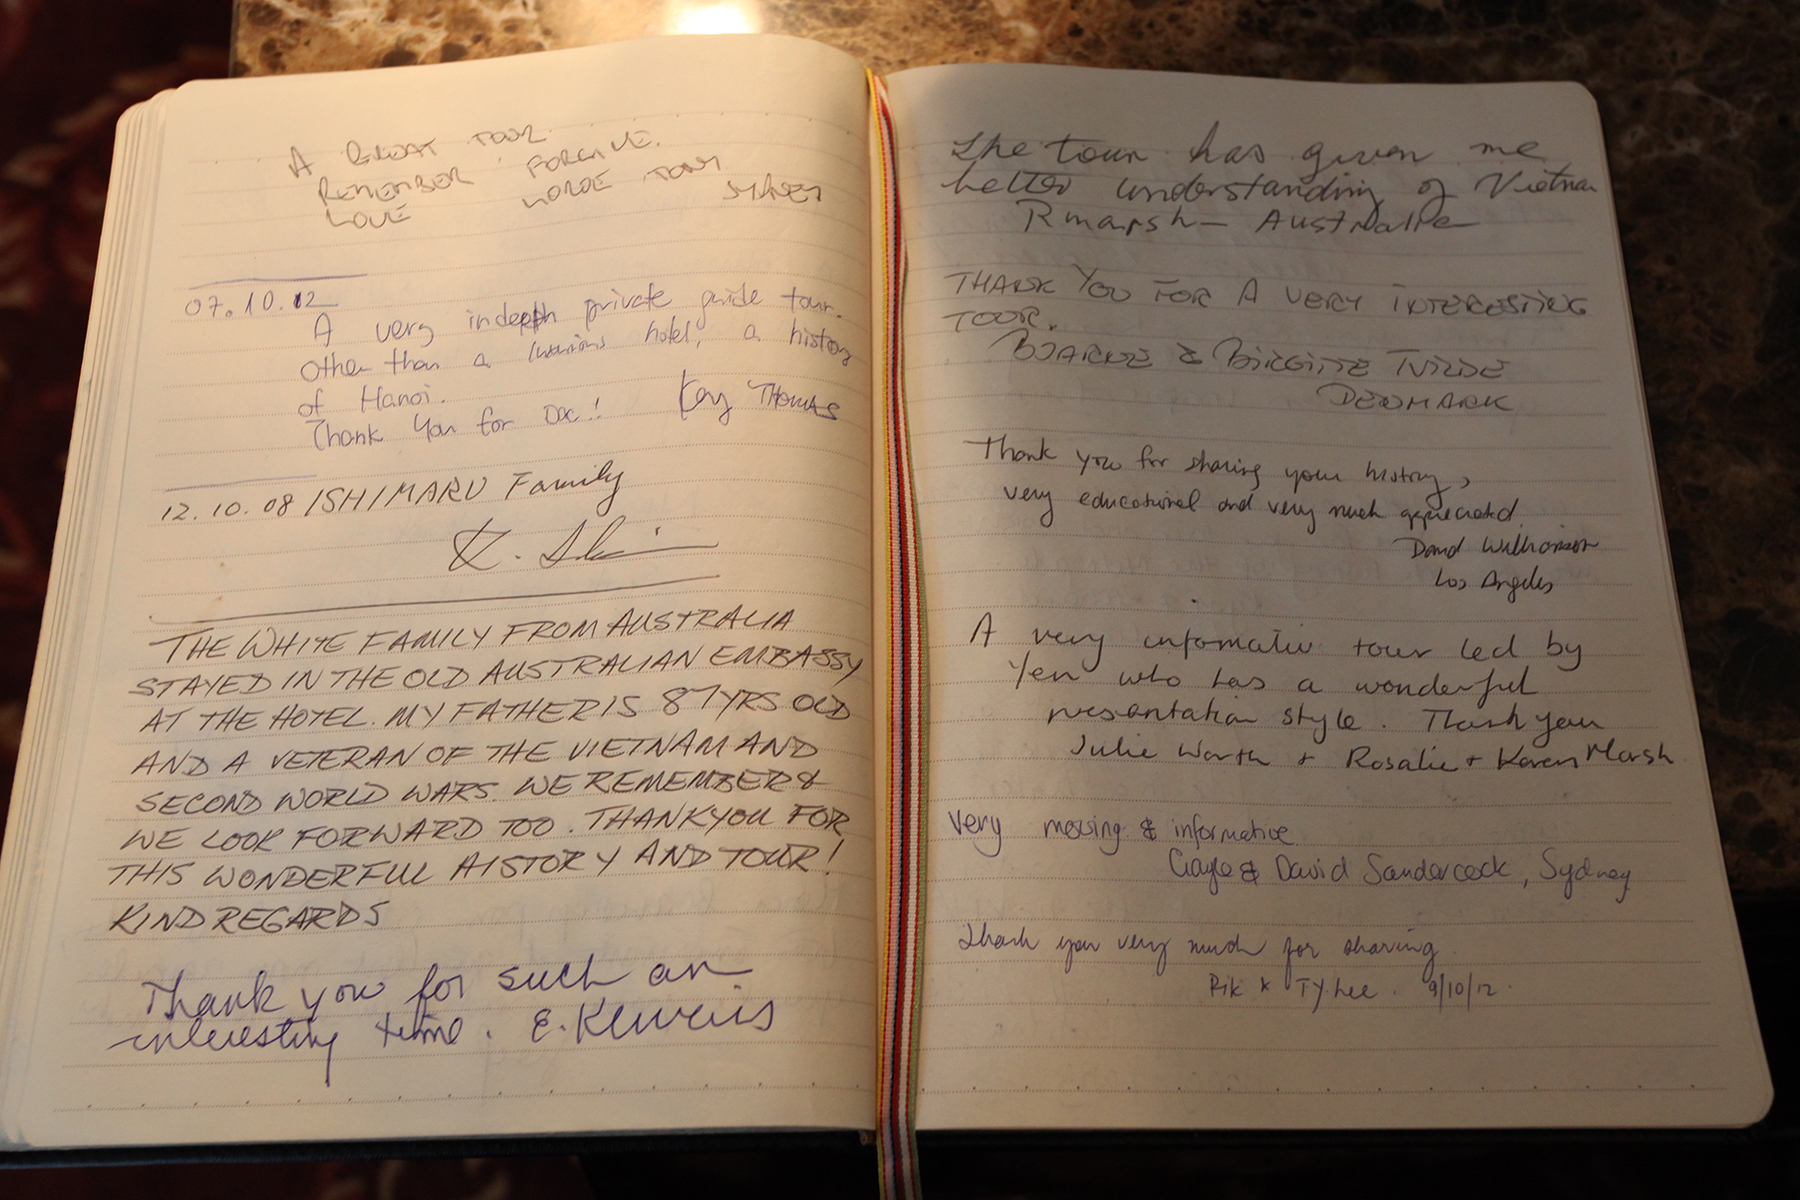 A GREAT TOUR
REMEMBER FORGIVE.
LOVE TONY
SYDNEY
07.10.12
A very indepth private guide tour.
Other than a luxurious hotel, a history
of Hanoi.
Thank You for Doc! Kay THOMAS
12.10.08 ISHIMARU Family
THE WHITE FAMILY FROM AUSTRALIA
STAYED IN THE OLD AUSTRALIAN EMBASSY
AT THE HOTEL. MY FATHER IS 87YRS OLD
AND A VETERAN OF THE VIETNAM AND
SECOND WORLD WARS. WE REMEMBER &
WE LOOK FORWARD TOO. THANKYOU FOR
THIS WONDERFUL HISTORY AND TOUR!
KIND REGARDS
Thank you for such an
interesting time. E.
The tour has given me
better understanding of Vietnam
R marsh - Australia
THANK YOU FOR A VERY INTERESTING
TOUR.
BJARNE & BIRGITTE TVILDE
DENMARK
Thank you for sharing your history,
very educational and very much appreciated.
David Williamson
Los Angeles
A very informativ tour led by
Yen who has a wonderful
presentation style. Thank you
Julie Worth + Rosalie + Karen Marsh
Very moving & informative
Gayle & David Sandercock, Sydney
Thank you very much for sharing
Rik & TY Lee. 9/10/12.